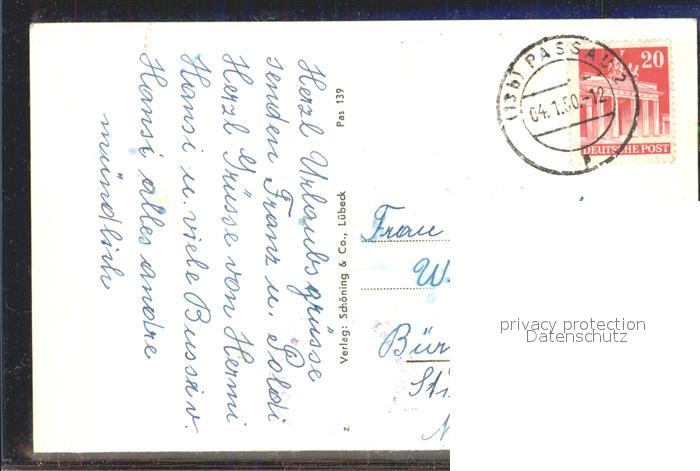 Herzl Urlaubsgrüsse
senden Franz u. Poldi
Herzl Grüsse von Hermi
Hansi u. viele Bussi v.
Hansi alles andre
mündlich
Pas 139
Verlag: Schöning & Co., Lübeck
z
(13b) PASSAU 2
04.1.60.-12
20
DEUTSCHE POST
Frau
W
Bür
St
N
privacy protection
Datenschutz